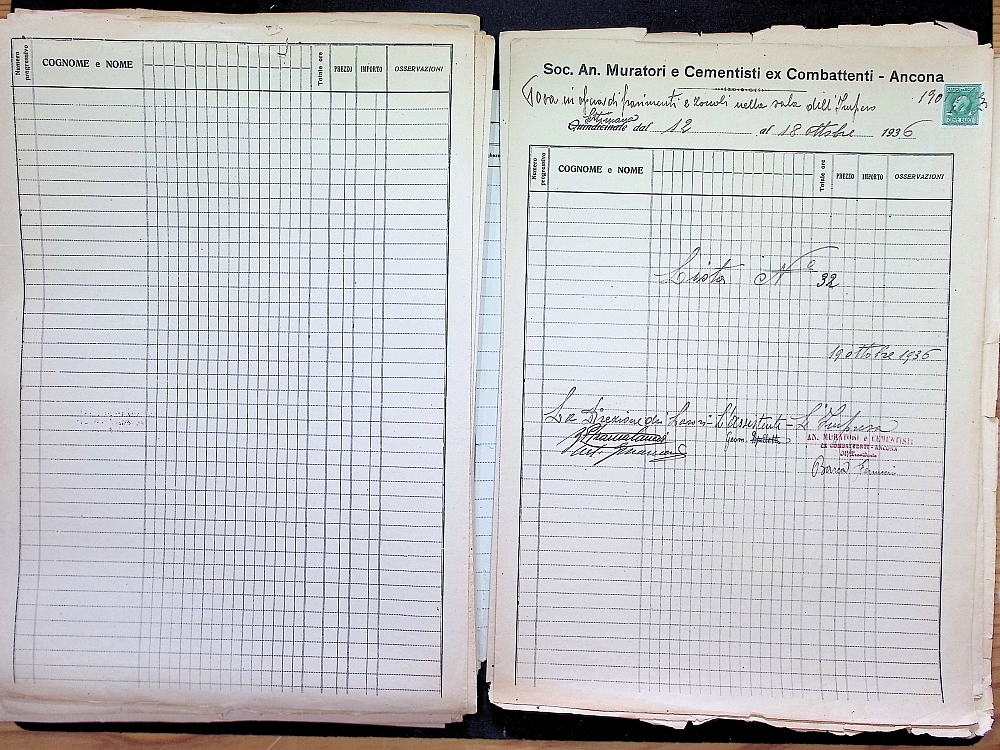 Numero progressivo
COGNOME e NOME
Totale ore
PREZZO
IMPORTO
OSSERVAZIONI
Soc. An. Muratori e Cementisti ex Combattenti - Ancona
Posa in opera di pavimenti e zoccoli nella sala dell'Impero
190
Settimana
Quindicinale dal 12 al 18 ottobre 1936
Numero progressivo
COGNOME e NOME
Totale ore
PREZZO
IMPORTO
OSSERVAZIONI
Lista N° 32
19 ottobre 1936
La Direzione dei Lavori - L'assistente - L'Impresa
Geom.
AN. MURATORI e CEMENTISTI
EX COMBATTENTI - ANCONA